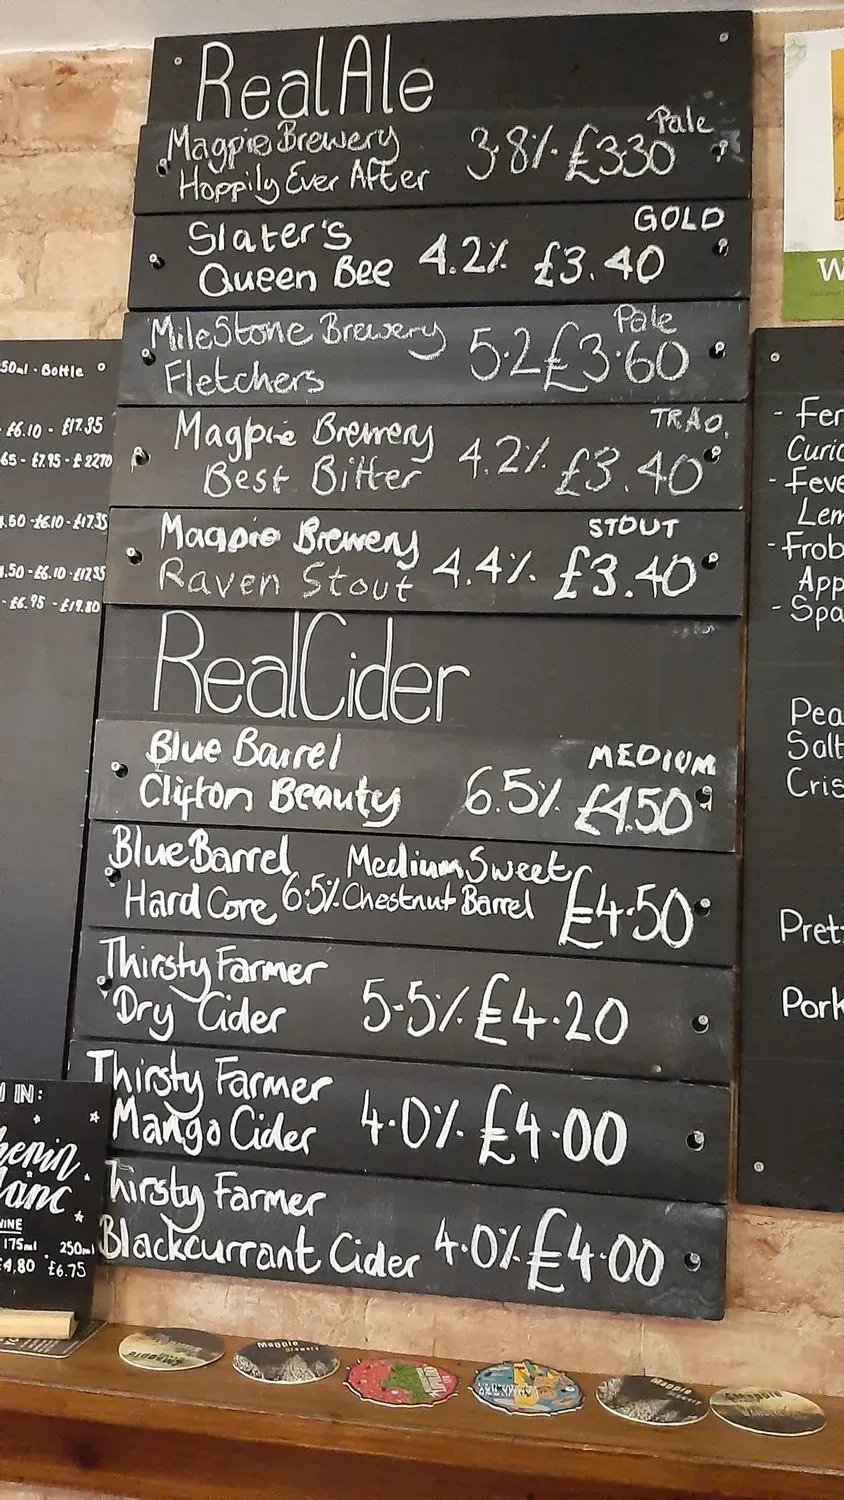 Real Ale
Pale
Magpie Brewery 3.8% £3.30
Hoppily Ever After
GOLD
Slater's
Queen Bee 4.2% £3.40
Pale
MileStone Brewery 5.2 £3.60
Fletchers
TRAD.
Magpie Brewery 4.2% £3.40
Best Bitter
STOUT
Magpie Brewery 4.4% £3.40
Raven Stout
Real Cider
Blue Barrel MEDIUM
Clifton Beauty 6.5% £4.50
Blue Barrel Medium Sweet
Hard Core 6.5% Chestnut Barrel £4.50
Thirsty Farmer
Dry Cider 5.5% £4.20
Thirsty Farmer
Mango Cider 4.0% £4.00
Thirsty Farmer
Blackcurrant Cider 4.0% £4.00
50ml - Bottle
- £6.10 - £17.35
65 - £7.95 - £22.70
4.50 - £6.10 - £17.35
4.50 - £6.10 - £17.35
- £6.95 - £19.80
IN:
175ml 250ml
£4.80 £6.75
- Fer
Curio
- Feve
Lem
- Frob
App
- Spa
Pea
Salt
Cris
Pret
Pork
W
Magpie
Brewery
Magpie
Brewery